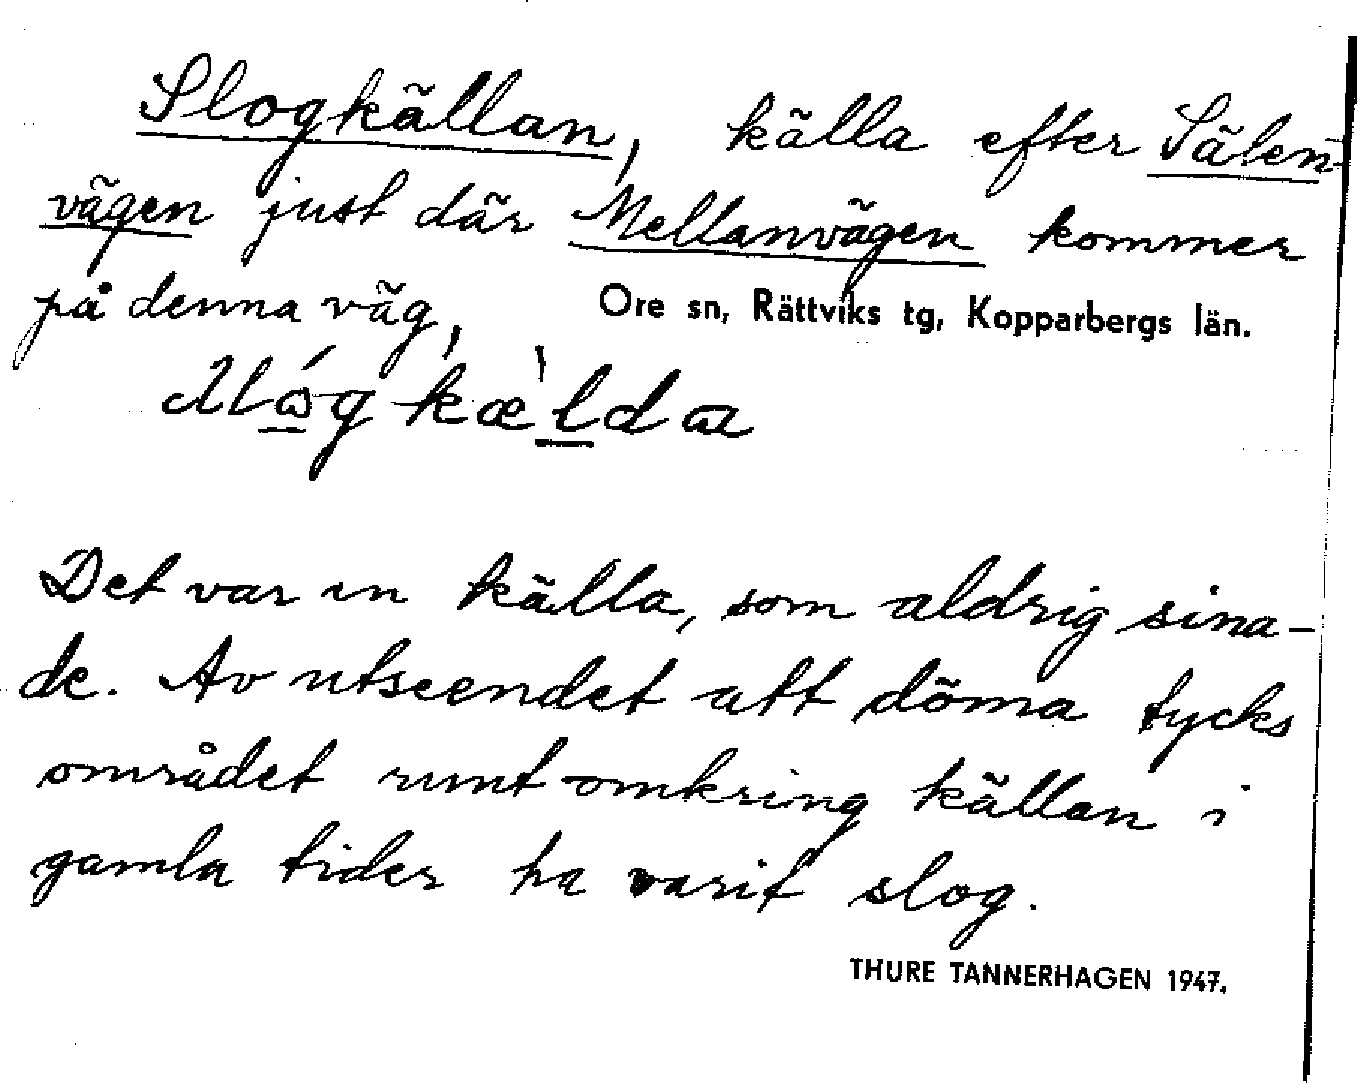 Slogkällan, källa efter Sälen-
vägen just där Mellanvägen kommer
på denna väg,
Ore sn, Rättviks tg, Kopparbergs län.
Det var en källa, som aldrig sina-
de. Av utseendet att döma tycks
området runt omkring källan i
gamla tider ha varit slog.
THURE TANNERHAGEN 1947.